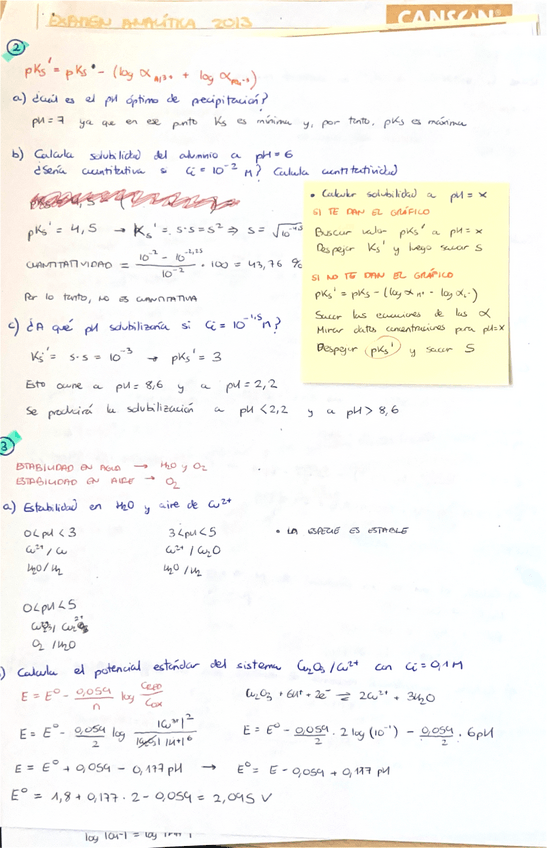 EXAMEN ANALÍTICA 2013
CANSON
②
pKs' = pKs° - (log α Al3+ + log α PO4-3)
a) ¿Cuál es el pH óptimo de precipitación?
pH=7 ya que en ese punto Ks es mínima y, por tanto, pKs es máxima
b) Calcula solubilidad del aluminio a pH=6
¿Sería cuantitativa si Ci = 10⁻² M? Calcula cuantitatividad
pKs' = 4,5 → Ks' = s·s = s² ⇒ s = √10⁻⁴'⁵
CUANTITATIVIDAD = (10⁻² - 10⁻²'²⁵) / 10⁻² · 100 = 43,76 %
Por lo tanto, no es CUANTITATIVA
• Calcular solubilidad a pH = x
SI TE DAN EL GRÁFICO
Buscar valor pKs' a pH=x
Despejar Ks' y luego sacar s
SI NO TE DAN EL GRÁFICO
pKs' = pKs - (log α n+ - log α -)
Sacar las ecuaciones de las α
Mirar datos concentraciones para pH=x
Despejar pKs' y sacar S
c) ¿A qué pH solubilizaría si Ci = 10⁻¹'⁵ M?
Ks' = s·s = 10⁻³ → pKs' = 3
Esto ocurre a pH = 8,6 y a pH = 2,2
Se producirá la solubilización a pH < 2,2 y a pH > 8,6
3
ESTABILIDAD EN AGUA → H2O y O2
ESTABILIDAD EN AIRE → O2
a) Estabilidad en H2O y aire de Cu²⁺
0<pH<3 3<pH<5 • LA ESPECIE ES ESTABLE
Cu²⁺/Cu Cu²⁺/Cu2O
H2O/H2 H2O/H2
0<pH<5
O2/H2O
) Calcula el potencial estándar del sistema Cu2O3/Cu²⁺ con Ci=0,1M
E = E° - 0,059/n log Cred/Cox Cu2O3 + 6H⁺ + 2e⁻ ⇌ 2Cu²⁺ + 3H2O
E = E° - 0,059/2 log |Cu²⁺|² / |Cu2O3| |H⁺|⁶ E = E° - 0,059/2 · 2 log (10⁻¹) - 0,059/2 · 6pH
E = E° + 0,059 - 0,177 pH → E° = E - 0,059 + 0,177 pH
E° = 1,8 + 0,177 · 2 - 0,059 = 2,095 V